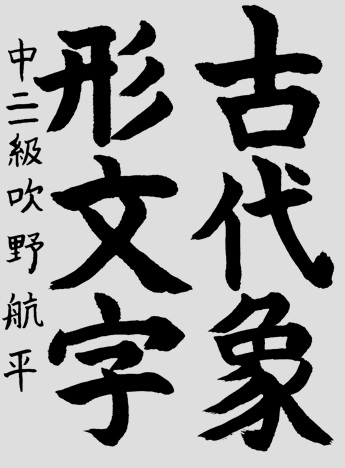 古代象
形文字
中二一級吹野航平